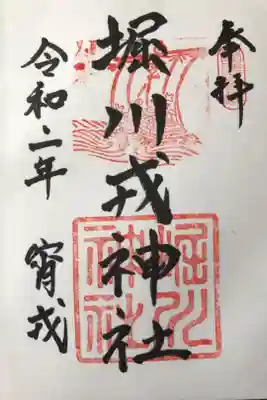 奉拝
堀川戎神社
令和二年 宵戎
堀川戎
神社